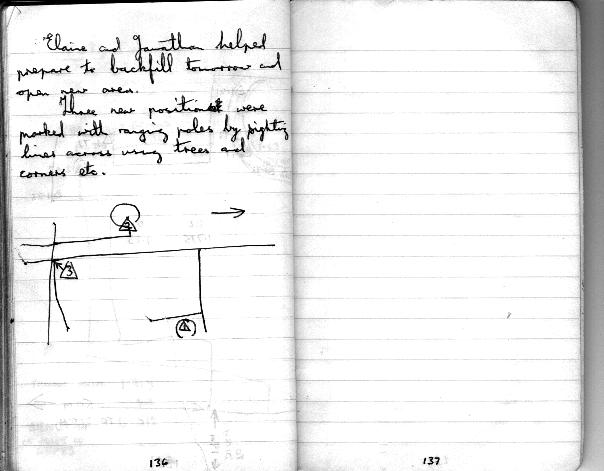 Elaine and Jonathan helped
prepare to backfill tomorrow and
open new area.
Three new positions were
marked with ranging poles by sighting
lines across using trees and
corners etc.
2
3
136
137